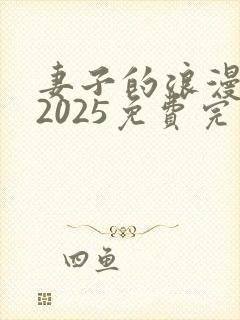 妻子的浪漫
2025免費完
四鱼